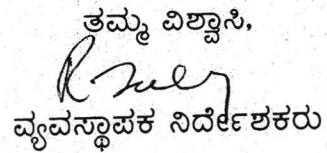 ತಮ್ಮ ವಿಶ್ವಾಸಿ,
ವ್ಯವಸ್ಥಾಪಕ ನಿರ್ದೇಶಕರು